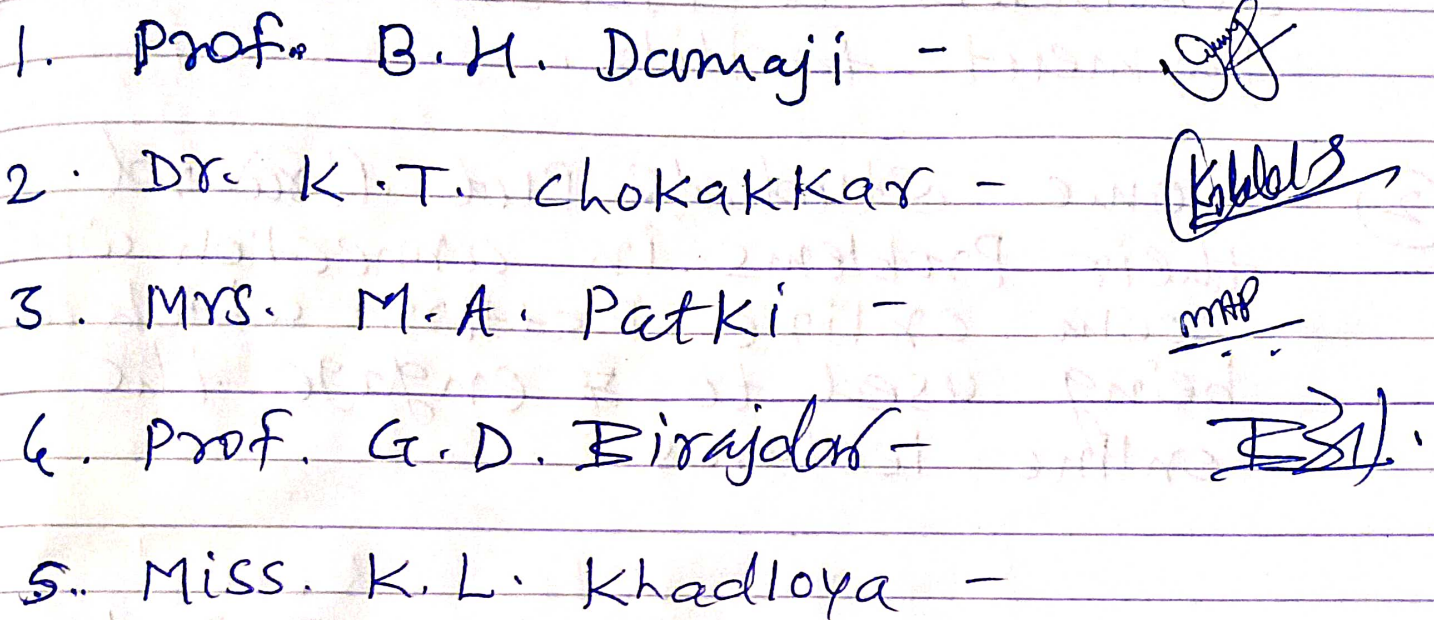 1. Prof. B.H. Damaji -
2. Dr. K.T. Chokakkar -
3. Mrs. M.A. Patki - MAP
4. Prof. G.D. Birajdar -
5. Miss. K.L. Khadloya -